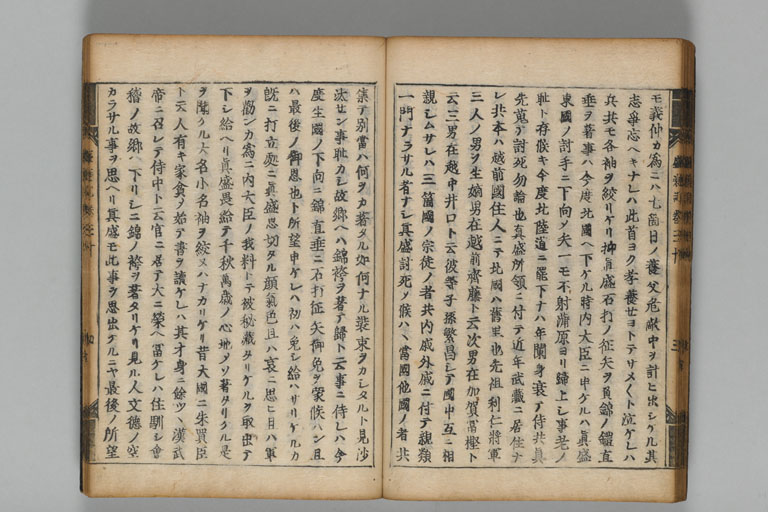 モ義仲カ為ニハ七箇日ノ養父危敵中ヲ計ヒ出シケル其
志争忘ヘキナレハ此首ヨク孝養セヨトテサメ〳〵ト泣ケレハ
兵共モ各袖ヲ絞リケリ抑真盛石打ノ征矢ヲ負錦ノ鎧直
垂ヲ著事ハ今度北國ヘ下ケル時内大臣ニ申ケルハ真盛
東國ノ討手ニ下向シテ矢一モ不射蒲原ヨリ歸上シ事老ノ
耻ト存候キ今度北陸道ニ罷下ナハ年闌身衰テ侍共真
先蒐テ討死勿論也真盛所領ニ付テ近年武藏ニ居住ナ
レ共本ハ越前國住人ニテ北國ハ舊里也先祖利仁將軍
三人ノ男ヲ生嫡男在越前齊藤ト云次男在加賀冨樫ト
云三男在越中井口ト云彼等子孫繁昌シテ國中互ニ相
親シムサレハ三箇國ノ宗徒ノ者共内戚外戚ニ付テ親類
一門ナラサル者ナシ真盛討死シテ候ハヽ當國他國ノ者共
集テ別當ハ何ヲカ著タル如何ナル裝束ヲカシタルト見沙
汰セン事耻カシ故郷ヘハ錦袴ヲ著テ歸ト云事ニ侍レハ今
度生國ノ下向ニ錦直垂ニ石打征矢御免ヲ蒙候ハン且
ハ最後ノ御恩也ト所望申ケレハ初ハ免シ給ハサリケルカ
既ニ打立處ニ真盛思切タル顔氣色且ハ哀ニ思ヒ且ハ軍
ヲ勸ンカ為ニ内大臣ノ我料トテ被秘蔵タリケルヲ取出テ
下シ給ヘリ真盛畏給テ千秋萬歳ノ心地シテソ著タリケル是
ヲ聞クル大名小名袖ヲ絞ヌハナカリケリ昔大國ニ朱買臣
ト云人有キ家貧ノ始テ書ヲ讀ケレハ其才身ニ餘ツヽ漢武
帝ニ召レテ侍中ト云官ニ居テ大ニ榮ヘ冨ケレハ住馴シ會
稽ノ故郷ヘ下リシニ錦ノ袴ヲ著タリケリ見ル人文德ノ空
カラサル事ヲ思ヘリ真盛モ此事ヲ思出ケルニヤ最後ノ所望